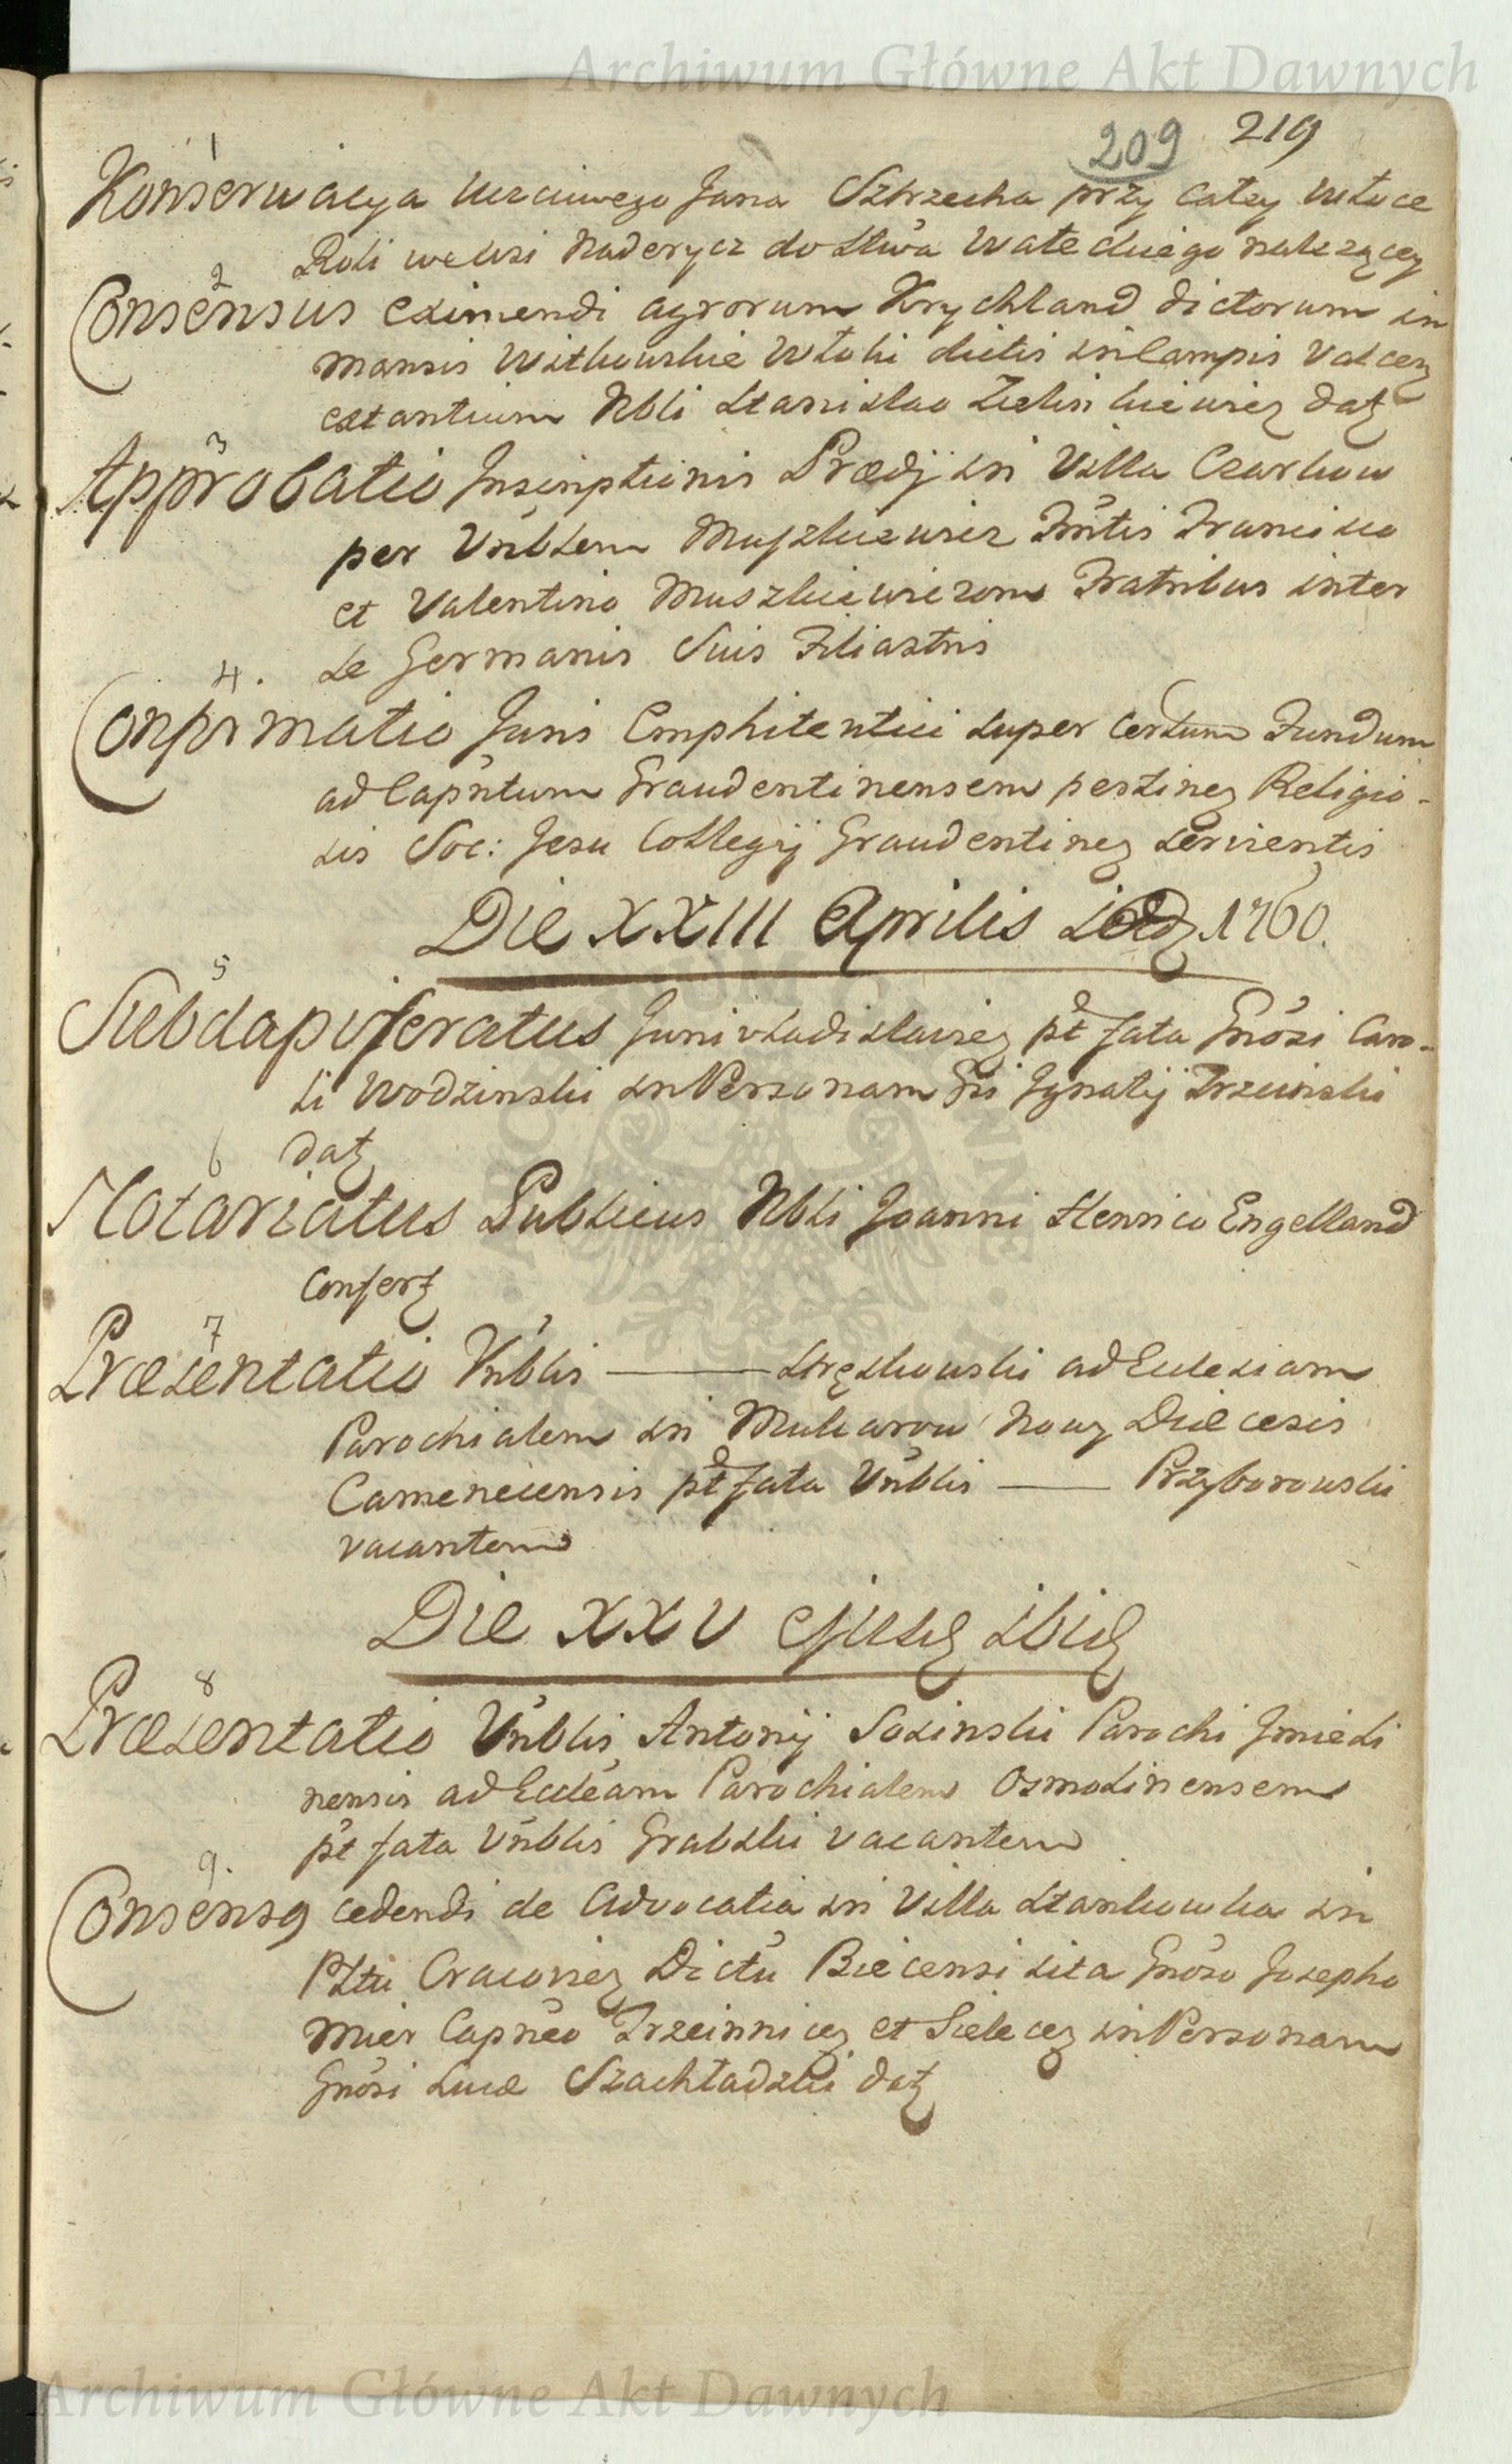 Archiwum Główne Akt Dawnych
209 219
1
Konserwacya Uczciwego Jana Sztrzecha przy całey Włoce
Roli we wsi Naderycz do Stwa Wałeckiego należącey
2
Consensus eximendi agrorum Krychland dictorum in
mansis Witkowskie Włoki dictis in Campis Valcen
extantium Nbli Stanislao Zielinkiewicz datz
3
Approbatio Inscriptionis Prædij in Villa Czarkow
per Vnblem Muszkiewicz Fmtis Francisco
et Valentino Muszkiewiczom Fratribus inter
se Germanis Suis Filiastris
4.
Confirmatio Juris Emphiteutici super certum Fundum
ad Capntum Graudentinensem pertinez Religio-
sis Soc: Jesu Collegij Graudentinez servientis
Die XXIII Aprilis 1760.
5
Subdapiferatus Junivladislaviez pt fata Gnosi Caro-
li Wodzinski in Personam Gsi Ignatij Trzcinski
datz
6
Notariatus Publicus Nbli Joanni Henrico Engelland
Confertz
7
Præsentatio Vnblis ——— Stręzkowski ad Eclesiam
Parochialem in Mukarow Nowy Diæcesis
Camenecensis pt fata Vnblis —— Przyborowski
vacantem
Die XXV ejusdz ibidz
8
Præsentatio Vnblis Antonij Sosinski Parochi Gmiedi
nensis ad Eccleam Parochialem Osmolinensem
pt fata Vnblis Grabski vacantem
9.
Consens9 cedendi de Advocatia in Villa Stankowka in
Pltu Cracoviez Dictu Biecensi sita Gnoso Josepho
Mier Capneo Trzcinnicez et Sielecez in Personam
Gnosi Lucæ Szachtadzki datz
Archiwum Główne Akt Dawnych